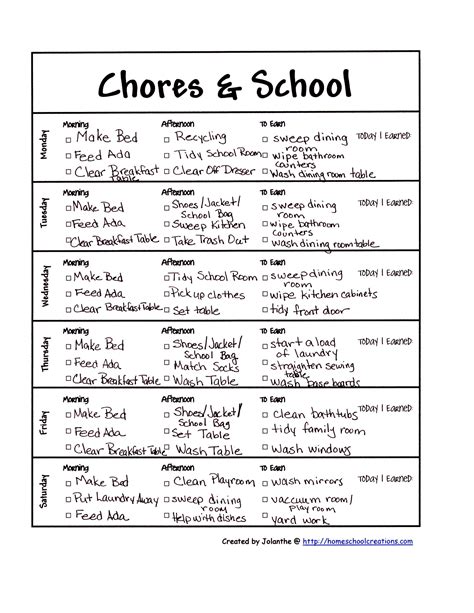 Chores & School
Monday
Morning Afternoon To Earn
Make Bed Recycling sweep dining room Today I Earned
Feed Ada Tidy School Room wipe bathroom counters
Clear Breakfast Table Clear Off Dresser Wash dining room table
Tuesday
Morning Afternoon To Earn
Make Bed Shoes/Jacket/School Bag sweep dining room Today I Earned
Feed Ada Sweep Kitchen wipe bathroom counters
Clear Breakfast Table Take Trash Out wash dining room table
Wednesday
Morning Afternoon To Earn
Make Bed Tidy School Room sweep dining room Today I Earned
Feed Ada Pick up clothes wipe kitchen cabinets
Clear Breakfast Table Set table tidy front door
Thursday
Morning Afternoon To Earn
Make Bed Shoes/Jacket/School Bag start a load of laundry Today I Earned
Feed Ada Match Socks straighten sewing table
Clear Breakfast Table Wash Table wash base boards
Friday
Morning Afternoon To Earn
Make Bed Shoes/Jacket/School Bag clean bathtubs Today I Earned
Feed Ada Set Table tidy family room
Clear Breakfast Table Wash Table Wash windows
Saturday
Morning Afternoon To Earn
Make Bed Clean Playroom wash mirrors Today I Earned
Put Laundry Away sweep dining room vaccuum room/Play room
Feed Ada Help with dishes yard work
Created by Jolanthe @ http://homeschoolcreations.com